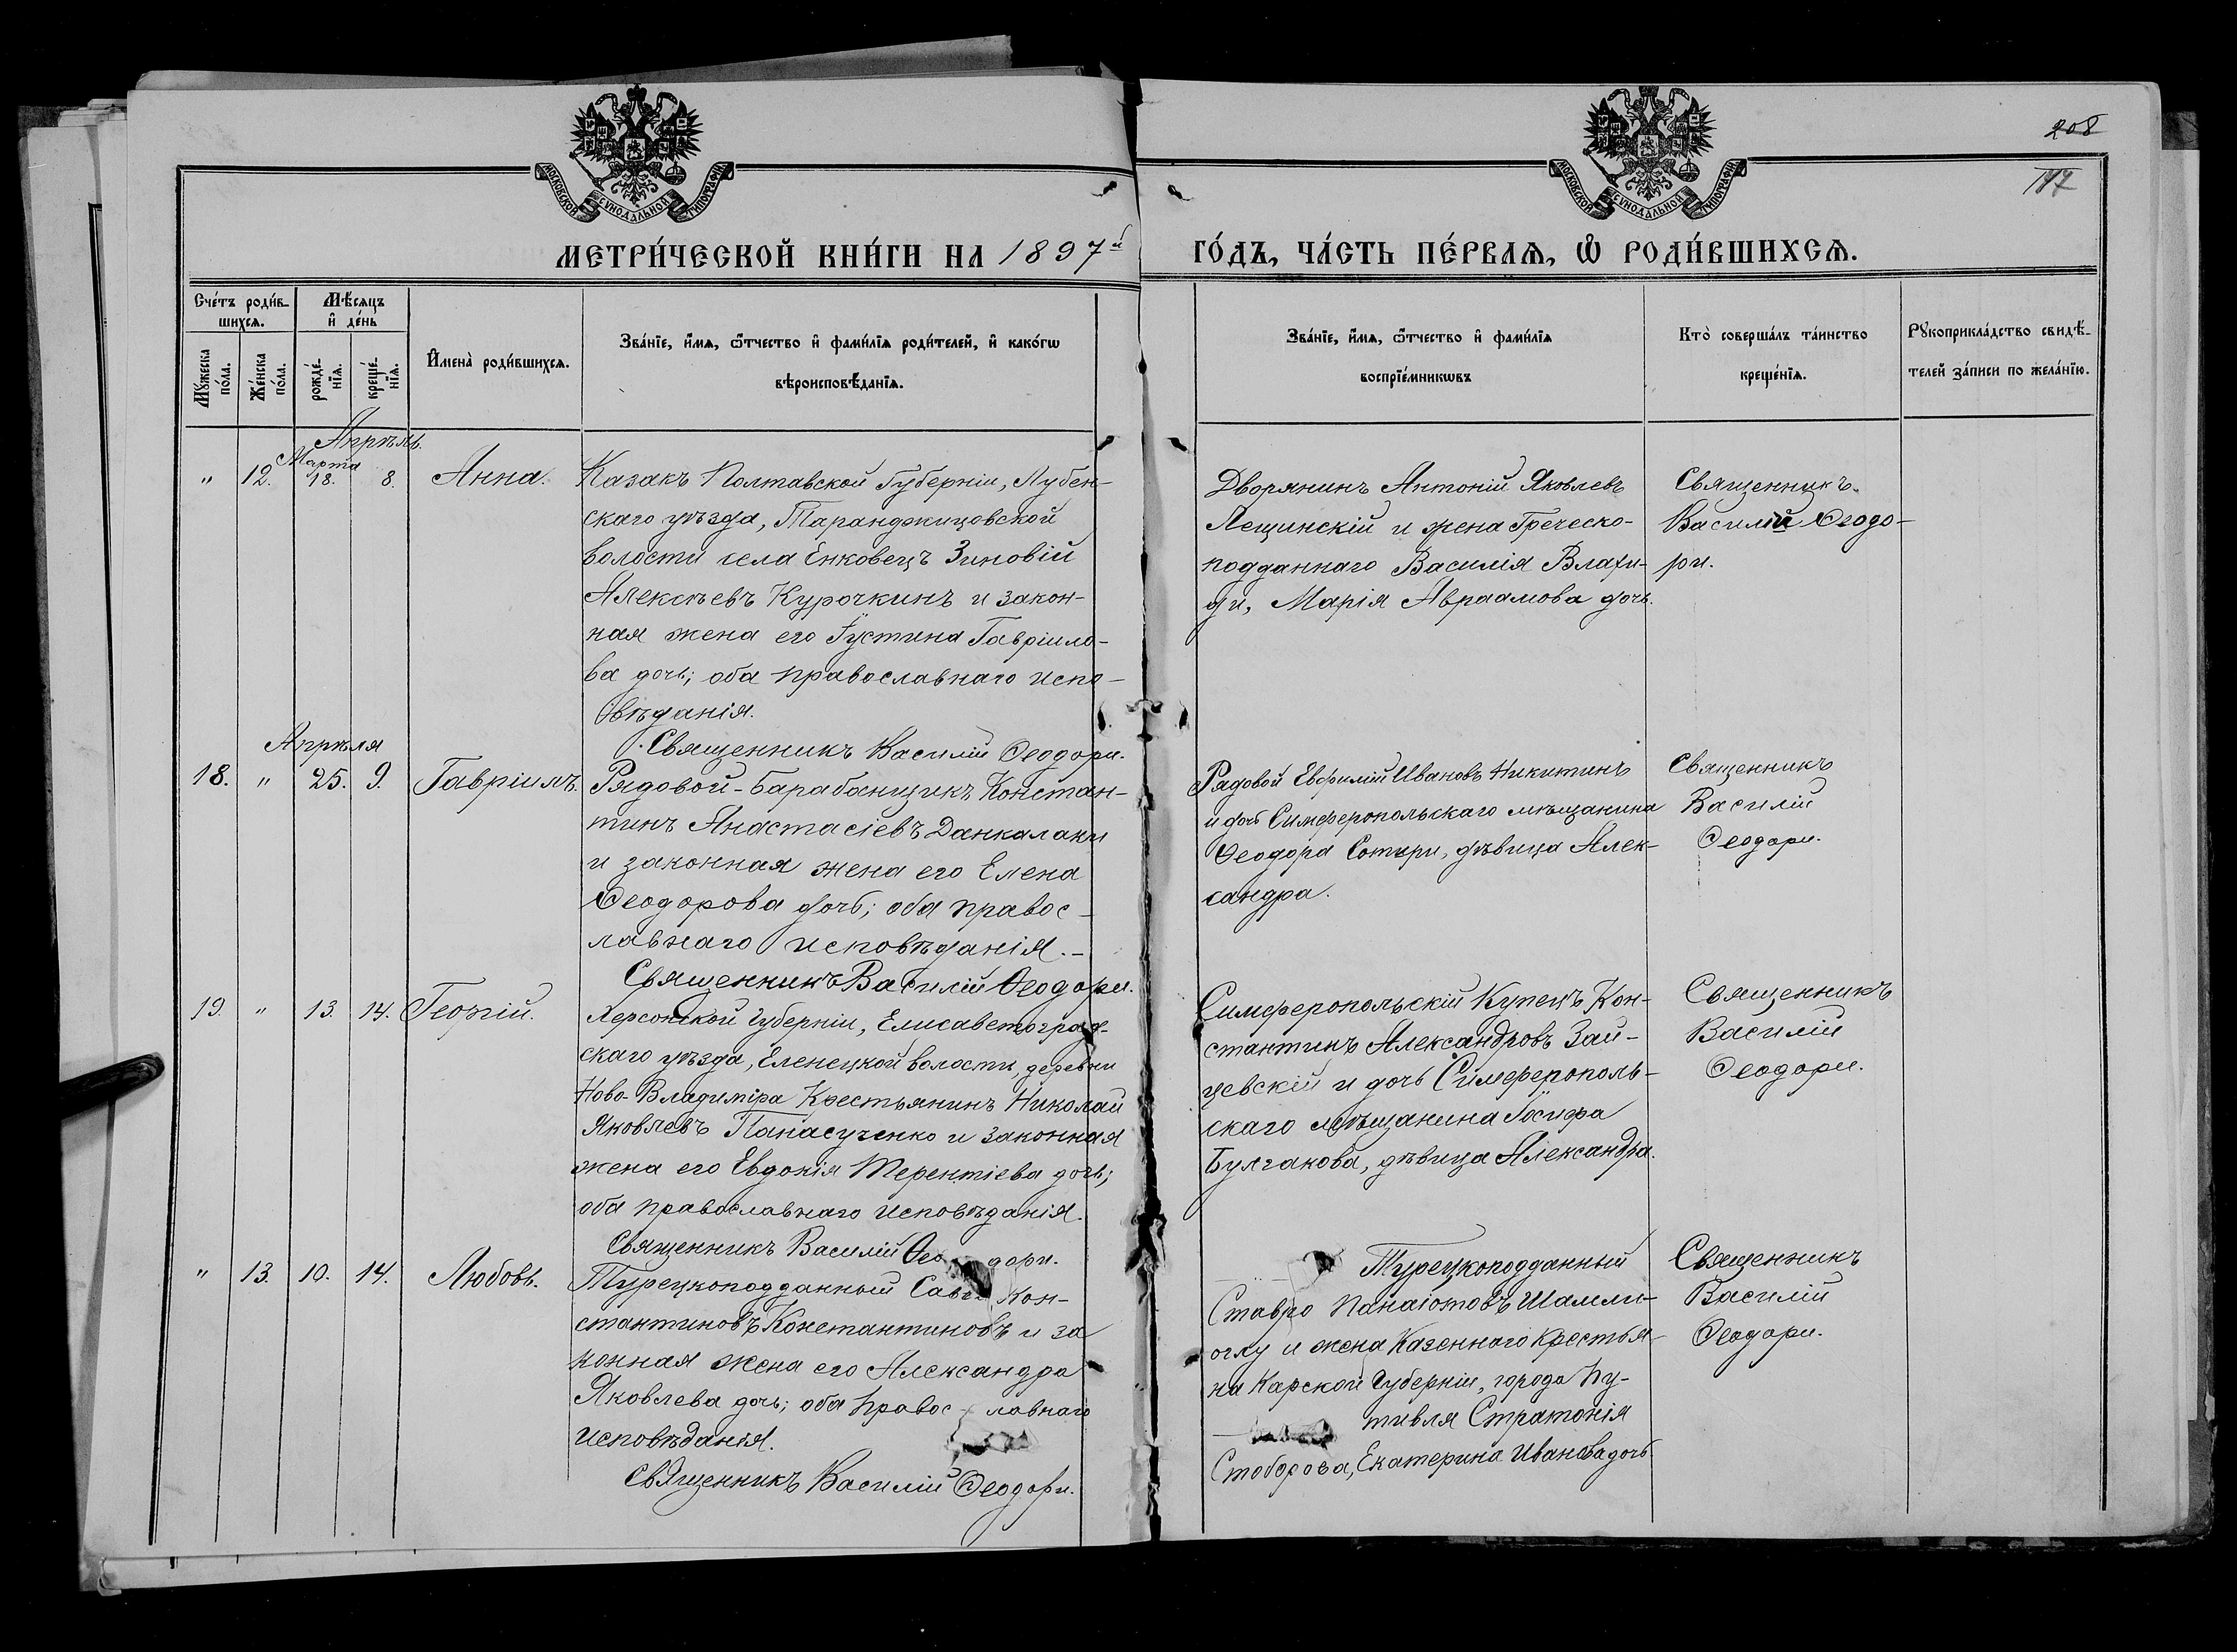 208
117
МОСКОВСКОЙ СУНОДАЛЬНОЙ ТИПОГРАФІИ
МОСКОВСКОЙ СУНОДАЛЬНОЙ ТИПОГРАФІИ
МЕТРИ́ЧЕСКОЙ КНИ́ГИ НА 1897й
ГО́ДЪ, ЧА́СТЬ ПЕ́РВАѦ, Ѡ РОДИ́ВШИХСѦ.
Сче́тъ роди́в-
шихсѧ.
Мѣ́сѧцъ
и҆ де́нь
Мꙋ́жеска
по́ла.
Же́нска
по́ла.
рожде́-
нїѧ.
креще́-
нїѧ.
И҆мена̀ роди́вшихсѧ.
Зва́нїе, и҆́мѧ, ѻ҆́тчество и҆ фами́лїѧ роди́телей, и҆ како́гѡ
вѣроисповѣ́данїѧ.
Зва́нїе, и҆́мѧ, ѻ҆́тчество и҆ фами́лїѧ
воспрїе́мникѡвъ
Кто̀ соверша́лъ та́инство
креще́нїѧ.
Рꙋкоприкла́дство свидѣ́-
телей за́писи по жела́нїю.
Апрѣль.
Марта
" 12. 18. 8. Анна.
Казакъ Полтавской Губерніи, Лубен-
скаго уѣзда, Таранджицовской
волости села Енковецъ Зиновій
Алексѣевъ Курочкинъ и закон-
ная жена его Іустина Гавріило-
ва дочь; оба православнаго испо-
вѣданія.
Священникъ Василій Ѳеодори.
Дворянинъ Антоній Яковлевъ
Лещинскій и жена Греческо-
подданнаго Василія Влахи-
ди, Марія Авраамова дочь.
Священникъ
Василій Ѳеодо-
ри.
Апрѣля
18. " 25. 9. Гавріилъ.
Рядовой-барабанщикъ Констан-
тинъ Анастасіевъ Данкалаки
и законная жена его Елена
Ѳеодорова дочь; оба правос-
лавнаго исповѣданія.-
Священникъ Василій Ѳеодори.
Рядовой Евфимій Ивановъ Никитинъ
и дочь Симферопольскаго мѣщанина
Ѳеодора Сотири, дѣвица Алек-
сандра.
Священникъ
Василій
Ѳеодори.
19. " 13. 14. Георгій.
Херсонской губерніи, Елисаветоград-
скаго уѣзда, Еленецкой волости, деревни
Ново-Владиміра Крестьянинъ Николай
Яковлевъ Панасученко и законная
жена его Евдокія Терентіева дочь;
оба православнаго исповѣданія.
Священникъ Василій Ѳеодори.
Симферопольскій Купецъ Кон-
стантинъ Александровъ Зай-
цевскій и дочь Симферополь-
скаго мѣщанина Іосифа
Булгакова, дѣвица Александра.
Священникъ
Василій
Ѳеодори.
" 13. 10. 14. Любовь.
Турецкоподданный Савва Кон-
стантиновъ Константиновъ и за
конная жена его Александра
Яковлева дочь; оба правос-лавнаго
исповѣданія.
Священникъ Василій Ѳеодори.
Турецкоподданный
Ставро Панаіотовъ Шамли-
оглу и жена Казеннаго крестья-
на Карской губерніи, города Пу-
тивля Стратонія
Стоборова, Екатерина Иванова дочь
Священникъ
Василій
Ѳеодори.